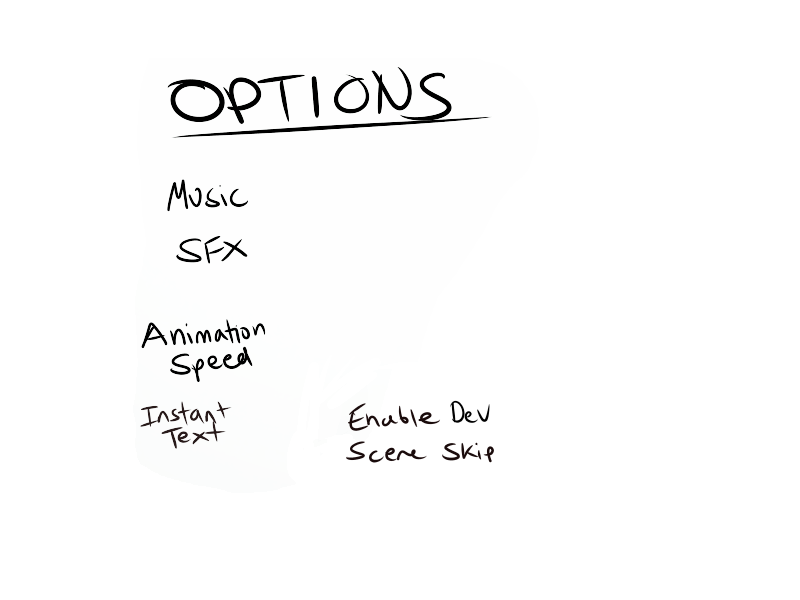 OPTIONS
Music
SFX
Animation
Speed
Instant
Text
Enable Dev
Scene Skip